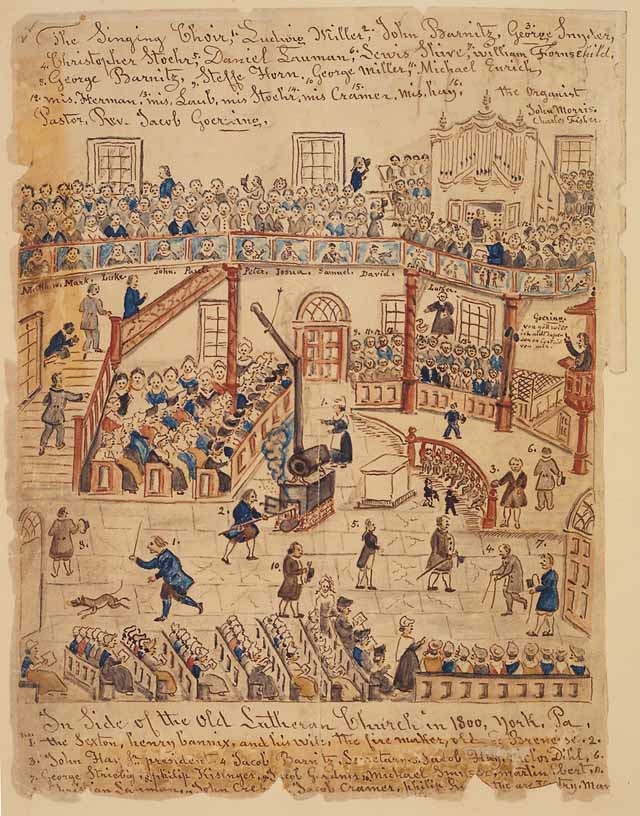 The Singing Choir, 1. Ludwig Miller, 2. John Barnitz, 3. George Snyder,
4. Christopher Stoehr, 5. Daniel Lauman, 6. Lewis Shive, 7. William Fornschild,
8. George Barnitz, 9. Steffe Horn, 10. George Miller, 11. Michael Eurich,
12. mis. Herman, 13. mis. Laub, mis Stoehr, 14. mis Cramer, 15. mis. hay, 16. the Organist
John Morris.
Charles Fisher.
Pastor, Rev. Jacob Goering,
Mathw. Mark. Luke John. Paul. Peter. Josua. Samuel. David.
Luther.
Goering.
von gott will
ich nicht
1.
2.
3.
4.
5.
6.
7.
8.
9.
10.
1.
In Side of the Old Lutheran Church in 1800, York, Pa.
1. the Sexton, henry Vannix, and his wife, the fire maker, 2.
3. John Hay, president 4. Jacob Barnitz, Secretary 5. Jacob Hay, Doctor Dihl, 6.
7. George Striebig, philip Kissinger, Jacob Gardner, michael martin Ebert,
Lauman, John Jacob Cramer, philip the